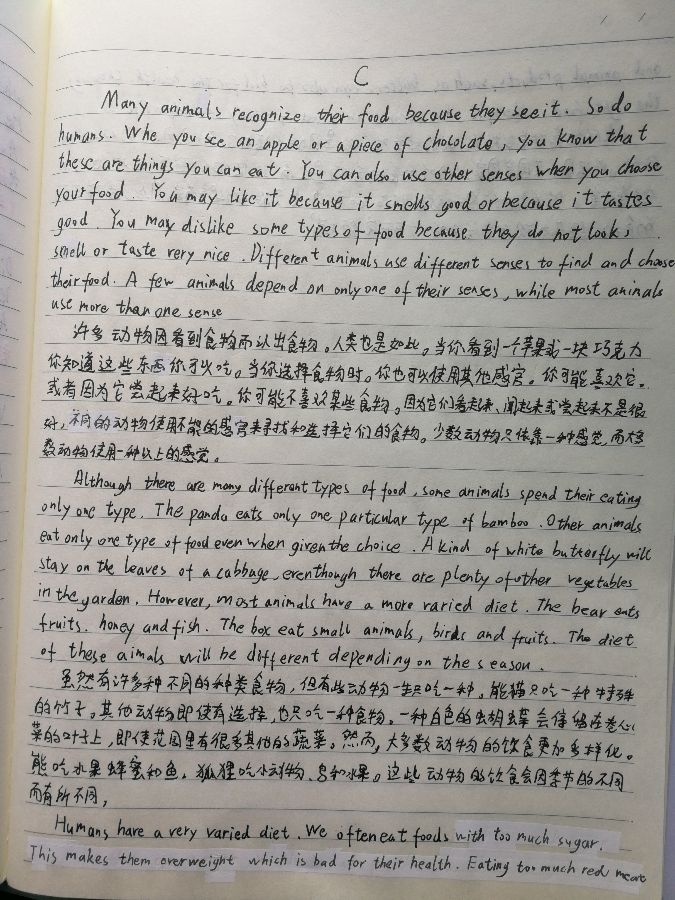 C
Many animals recognize their food because they see it. So do
humans. Whe you see an apple or a piece of chocolate, you know that
these are things you can eat. You can also use other senses when you choose
your food. You may like it because it smells good or because it tastes
good. You may dislike some types of food because they do not look,
smell or taste very nice. Different animals use different senses to find and choose
their food. A few animals depend on only one of their senses, while most animals
use more than one sense
许多动物因看到食物而认出食物。人类也是如此。当你看到一个苹果或一块巧克力
你知道这些东西你可以吃。当你选择食物时。你也可以使用其他感官。你可能喜欢它。
或者因为它尝起来好吃。你可能不喜欢某些食物。因为它们看起来、闻起来或尝起来不是很
好,不同的动物使用不能的感官来寻找和选择它们的食物。少数动物只依靠一种感觉,而大多
数动物使用一种以上的感觉。
Although there are many different types of food, some animals spend their eating
only one type. The panda eats only one particular type of bamboo. Other animals
eat only one type of food even when given the choice. A kind of white butterfly will
stay on the leaves of a cabbage, even though there are plenty of other vegetables
in the garden. However, most animals have a more varied diet. The bear eats
fruits. honey and fish. The box eat small animals, birds and fruits. The diet
of these aimals will be different depending on the season.
虽然有许多种不同的种类食物,但有些动物一生只吃一种。熊猫只吃一种特殊
的竹子。其他动物即使有选择,也只吃一种食物。一种白色的蝴蝶会停留在卷心
菜的叶子上,即使花园里有很多其他的蔬菜。然而,大多数动物的饮食更加多样化。
熊吃水果蜂蜜和鱼。狐狸吃小动物、鸟和水果。这些动物的饮食会因季节的不同
而有所不同,
Humans have a very varied diet. We often eat foods with too much sugar.
This makes them overweight which is bad for their health. Eating too much red meat